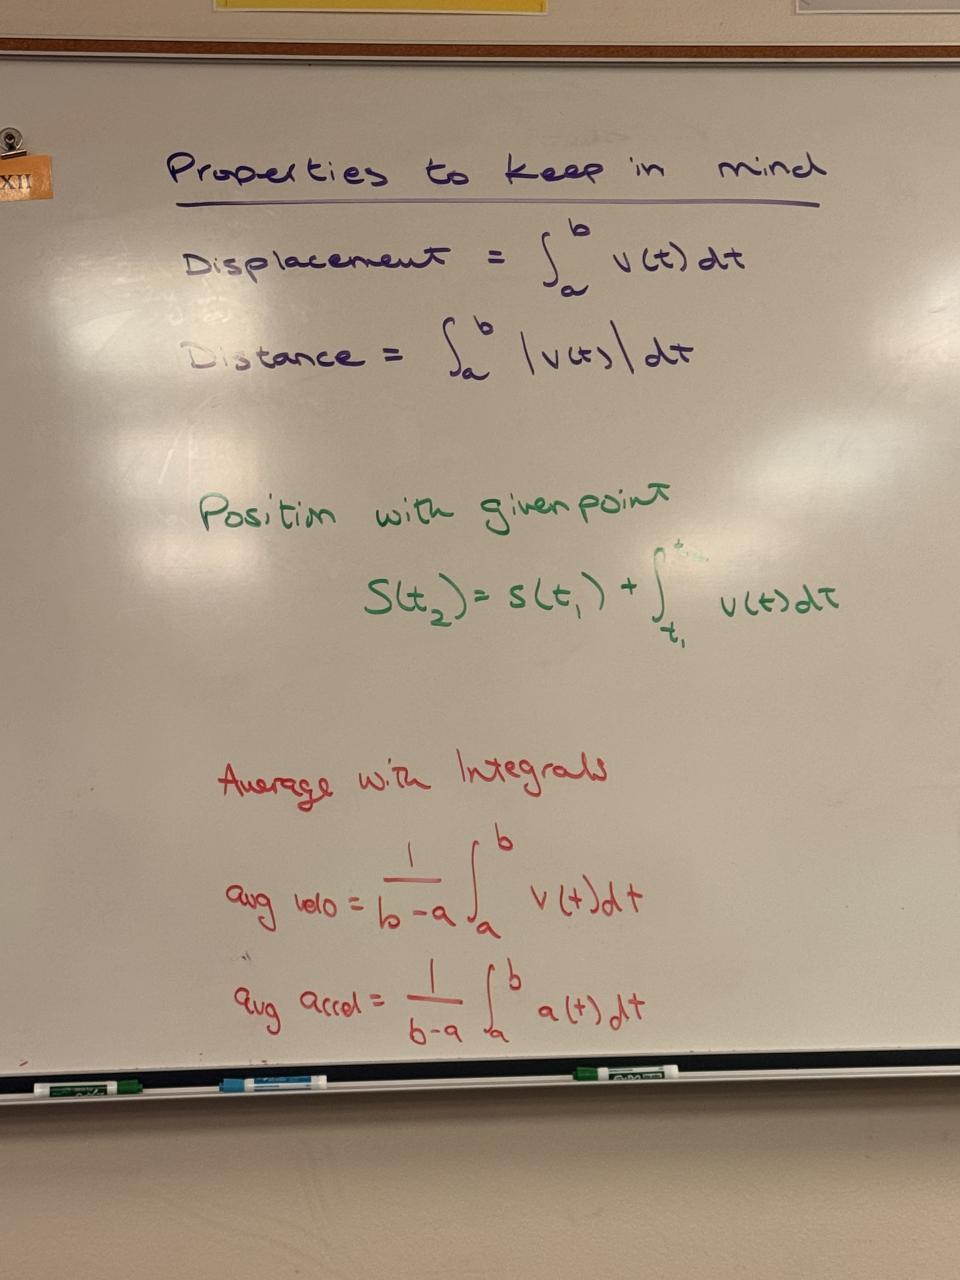 XII
Properties to keep in mind
Displacement = ∫_a^b v(t) dt
Distance = ∫_a^b |v(t)| dt
Position with given point
S(t₂) = s(t₁) + ∫_t₁ v(t) dt
Average with Integrals
avg velo = 1/(b-a) ∫_a^b v(t) dt
avg accel = 1/(b-a) ∫_a^b a(t) dt